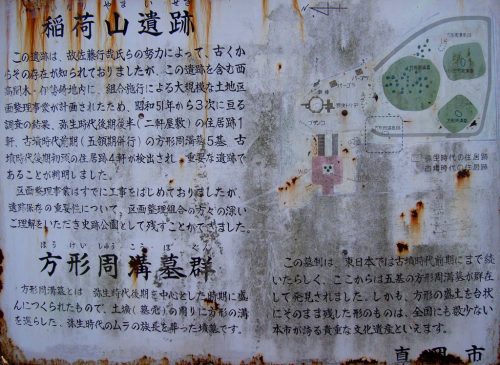 やま いせき
稲荷山遺跡
この遺跡は、故佐藤行哉氏らの努力によって、古くか
らその存在が知られておりましたが、この遺跡を含む西
高間木・伊勢崎地内に、組合施行による大規模な土地区
画整理事業が計画されたため、昭和51年から3次に亘る
調査の結果、弥生時代後期後半(二軒屋敷)の住居跡1
軒、古墳時代前期(五領期併行)の方形周溝墓5基、古
墳時代後期初頭の住居跡4軒が検出され、重要な遺跡で
あることが判明しました。
区画整理事業はすでに工事をはじめておりましたが、
遺跡保存の重要性について、区画整理組合の方々の深い
ご理解をいただき史跡公園として残すことができました。
ほうけいしゅうこうぼぐん
方形周溝墓群
方形周溝墓とは、弥生時代後期を中心とした時期に盛
んにつくられたもので、土壙(墓穴)の周りに方形の溝
を巡らした、弥生時代のムラの族長を葬った墳墓です。
方形周溝墓
ブランコ
弥生時代の住居跡
古墳時代の住居跡
この墓制は、東日本では古墳時代前期にまで続
いたらしく、ここからは五基の方形周溝墓が群在
して発見されました。しかも、方形の盛土を台状
にそのまま残した形のものは、全国にも数少ない
本市が誇る貴重な文化遺産といえます。
真岡市